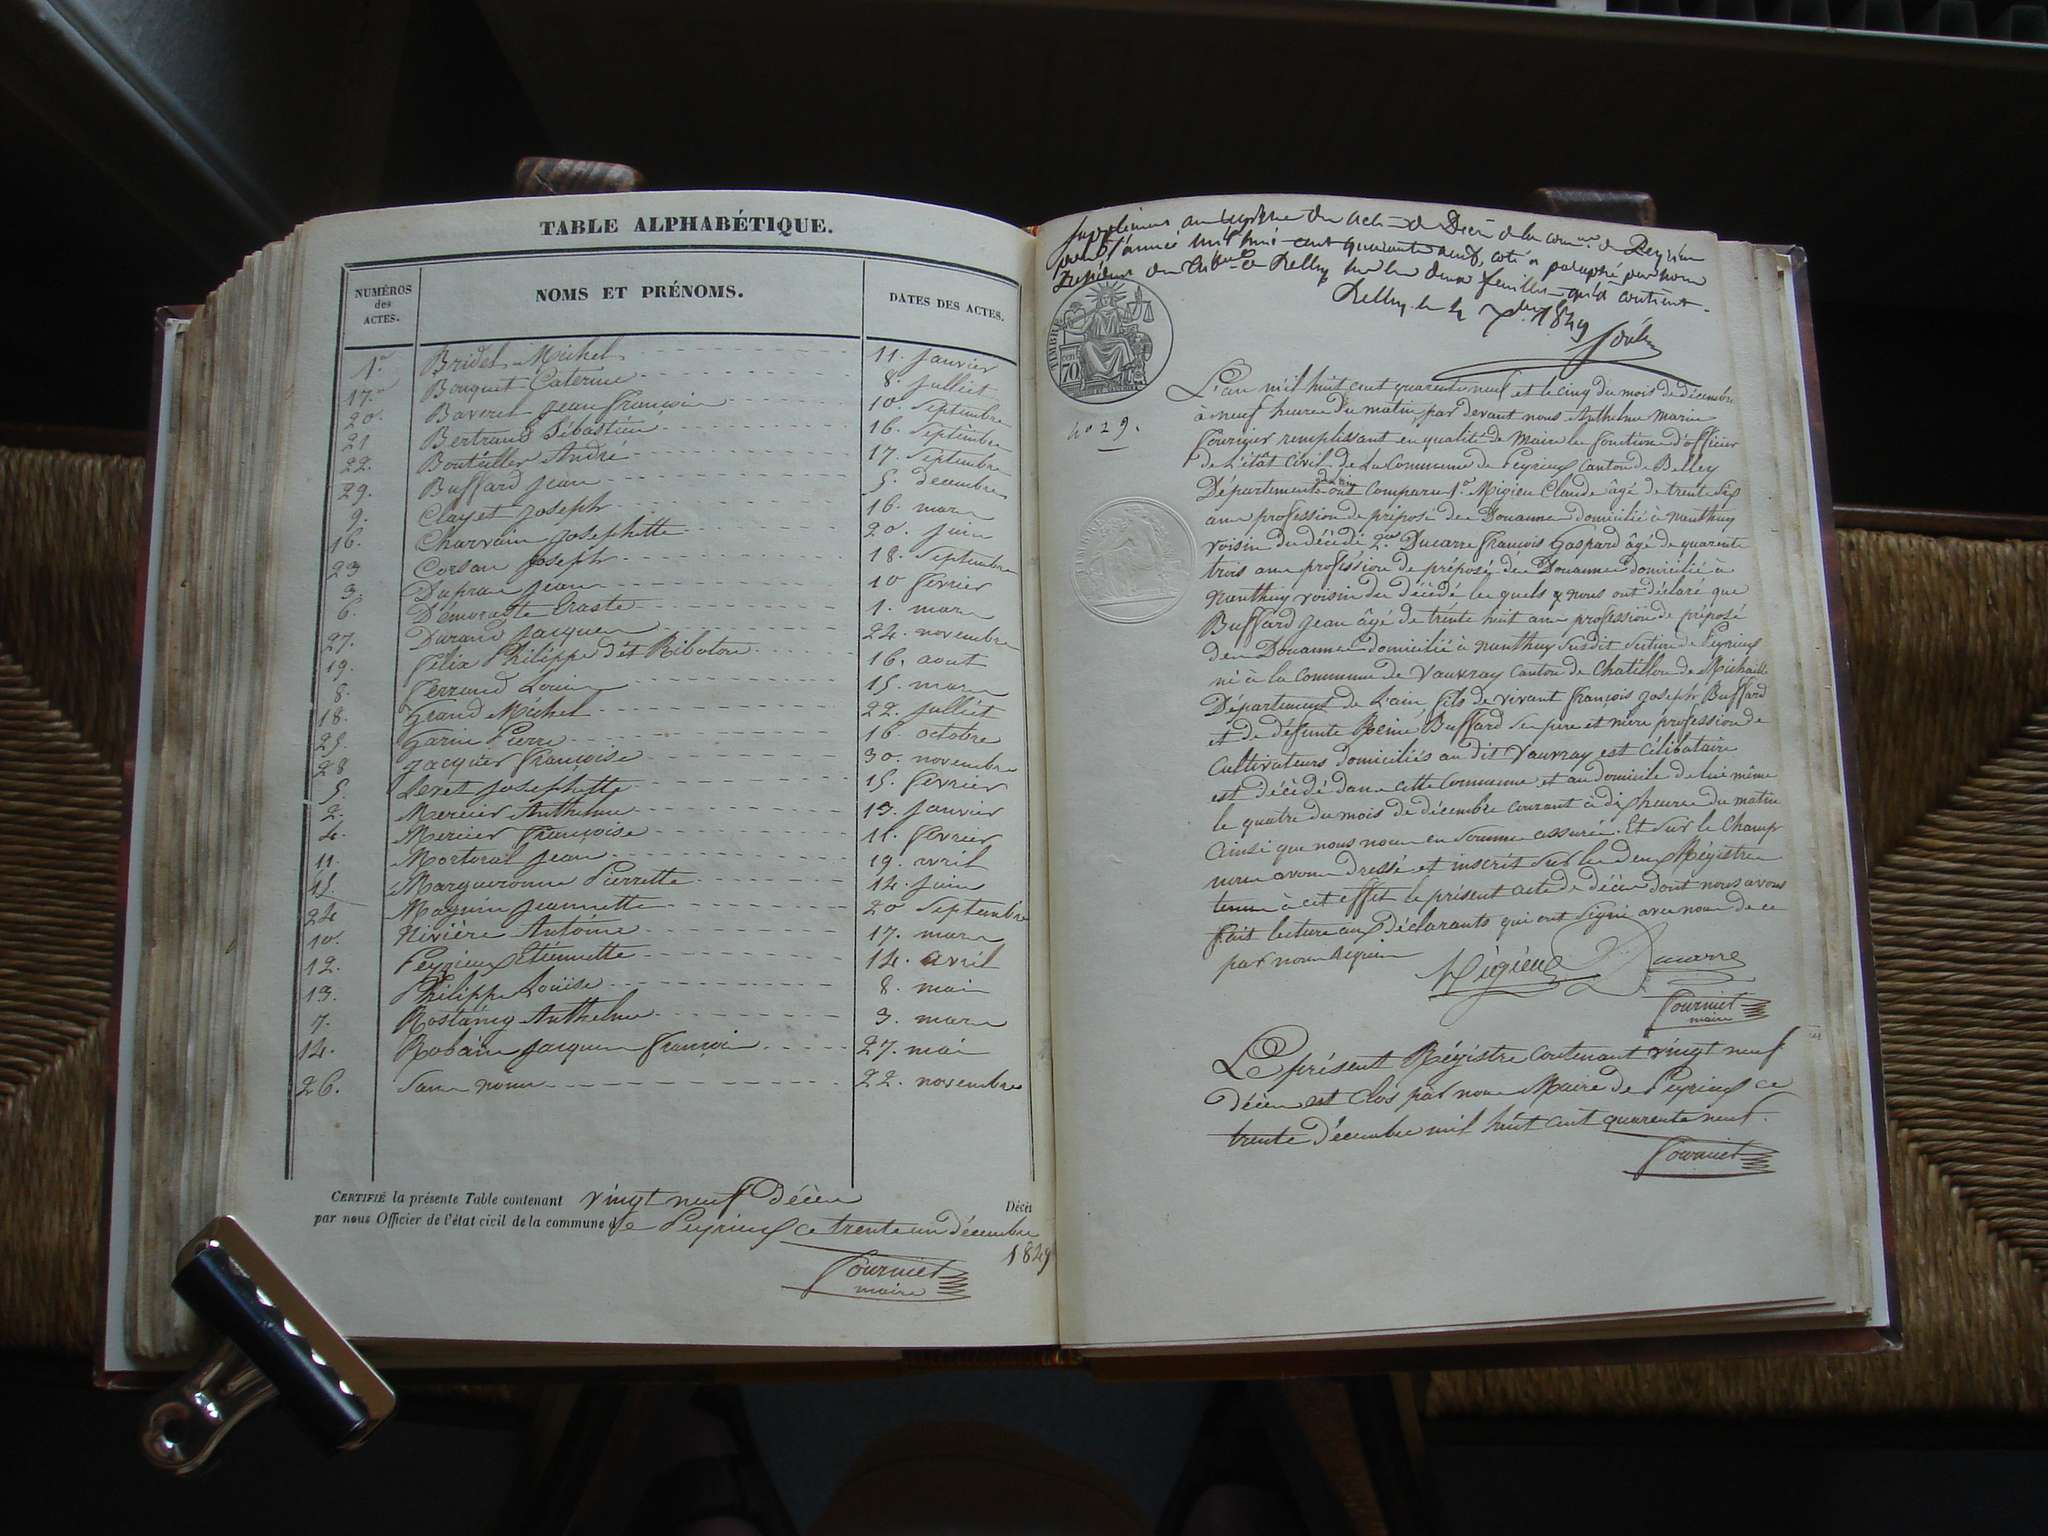 TABLE ALPHABÉTIQUE.
NUMÉROS des ACTES. NOMS ET PRÉNOMS. DATES DES ACTES.
1er Bridet Michel 11. Janvier
17. Bouquet Caterine 8. Julliet
20. Baverel Jean François 10. Septembre
21 Bertrand Sébastien 16. Septembre
22. Bouteiller André 17. Septembre
29. Buffard Jean 5. décembre
9. Clayet Joseph 16. mars
16. Charvain Josephette 20. Juin
23 Corsan Joseph 18. Septembre
3. Dupras Jean 10 fevrier
6. Eraste 1. mars
27. Durand Jacques 24. novembre
19. Félix Philippe dit Riboton 16. aout
8. Ferrand Louis 15. mars
18. Grand Michel 22. Julliet
25. Garin Pierre 16. octobre
28 Jacquier Françoise 30. novembre
5. Josephette 15. fevrier
2. Mercier Anthelme 13. Janvier
4. Mercier Françoise 11. fevrier
11. Jean 19. avril
15. Margueronne Pierrette 14. Juin
24 Magnin Jeannette 20 Septembre
10. Nivière Antoine 17. mars
12. Peyrieux Etiennette 14. avril
13. Philippe Louise 8. mai
7. Rostaing Anthelme 3. mars
14. Robain Jacques François 27. mai
26. Sans nom 22. novembre
CERTIFIÉ la présente Table contenant vingt neuf décès Décès
par nous Officier de l'état civil de la commune de Peyrieux ce trente un décembre
1849
Fournier
maire
Supplément au registre des actes de Décès de la comune de Peyrieu
pour l'année mil huit cent quarante neuf, coté & paraphé par nous
Président du Tribal de Belley sur les deux feuilles qu'il contient.
Belley le 4 Xbre 1849
TIMBRE
70 cent
no 29.
L'an mil huit cent quarente neuf et le cinq du mois de décembre
à neuf heures du matin, par devant nous Anthelme Marin
Fournier remplissant en qualité de Maire les fonctions d'officier
de l'étât Civil de la Commune de Peyrieux Canton de Belley
Département de l'ain ont Comparu 1o Migieu Claude âgé de trente six
ans profession de préposé des Douannes domicilié à Nanthuy
voisin du décédé 2o Ducarre François Gaspard âgé de quarente
trois ans profession de préposé des Douannes domicilié à
Nanthuy voisin du décédé les quels nous ont déclaré que
Buffard Jean âgé de trente huit ans profession de préposé
des Douannes domicilié à Nanthuy susdit section de Peyrieux
né à la Commune de Vauvray Canton de Chatillon de Michaille
Département de l'ain, fils de vivant François Joseph Buffard
et de défunte Reine Buffard ses père et mère profession de
Cultivateurs domiciliés au dit Vauvray est Célibataire
est décédé dans cette Commune et au domicile de lui même
le quatre du mois de décembre courant à dix heures du matin
Ainsi que nous nous en sommes assurés. Et sur le Champ
nous avons dressé et inscrit sur les deux Régistres
tenus à cet effet le présent acte de décès dont nous avons
fait lecture aux Déclarants qui ont signé avec nous de ce
par nous Requis
Migieu Ducarre
Fournier
maire
Le présent Régistre contenant vingt neuf
décès est Clos par nous Maire de Peyrieux ce
trente décembre mil huit cent quarente neuf.
Fournier